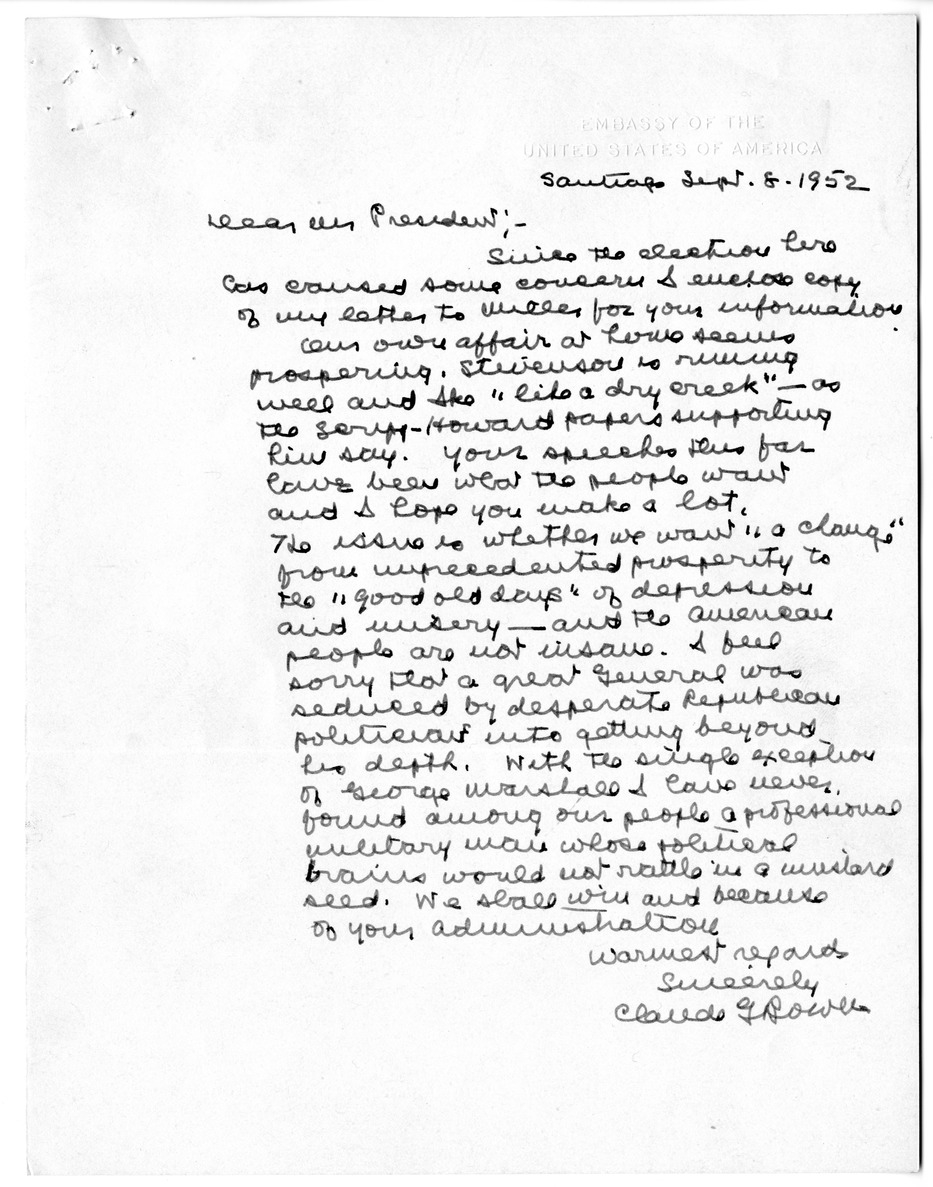 EMBASSY OF THE
UNITED STATES OF AMERICA
Santiago Sept. 8. 1952
Dear Mr President;-
Since the election here
has caused some concern I enclose copy
of my letter to Miller for your information
Our own affair at home seems
prospering. Stevenson is running
well and Ike "like a dry creek" — as
the Scripp-Howard papers supporting
him say. Your speeches thus far
have been what the people want
and I hope you make a lot.
The issue is whether we want "a change"
from unprecedented prosperity to
the "good old days" of depression
and misery — and the American
people are not insane. I feel
sorry that a great General was
seduced by desperate Republican
politicians into getting beyond
his depth. With the single exception
of George Marshall I have never
found among our people a professional
military man whose political
brains would not rattle in a mustard
seed. We shall win and because
of your administration
Warmest regards
Sincerely
Claude G Bowers